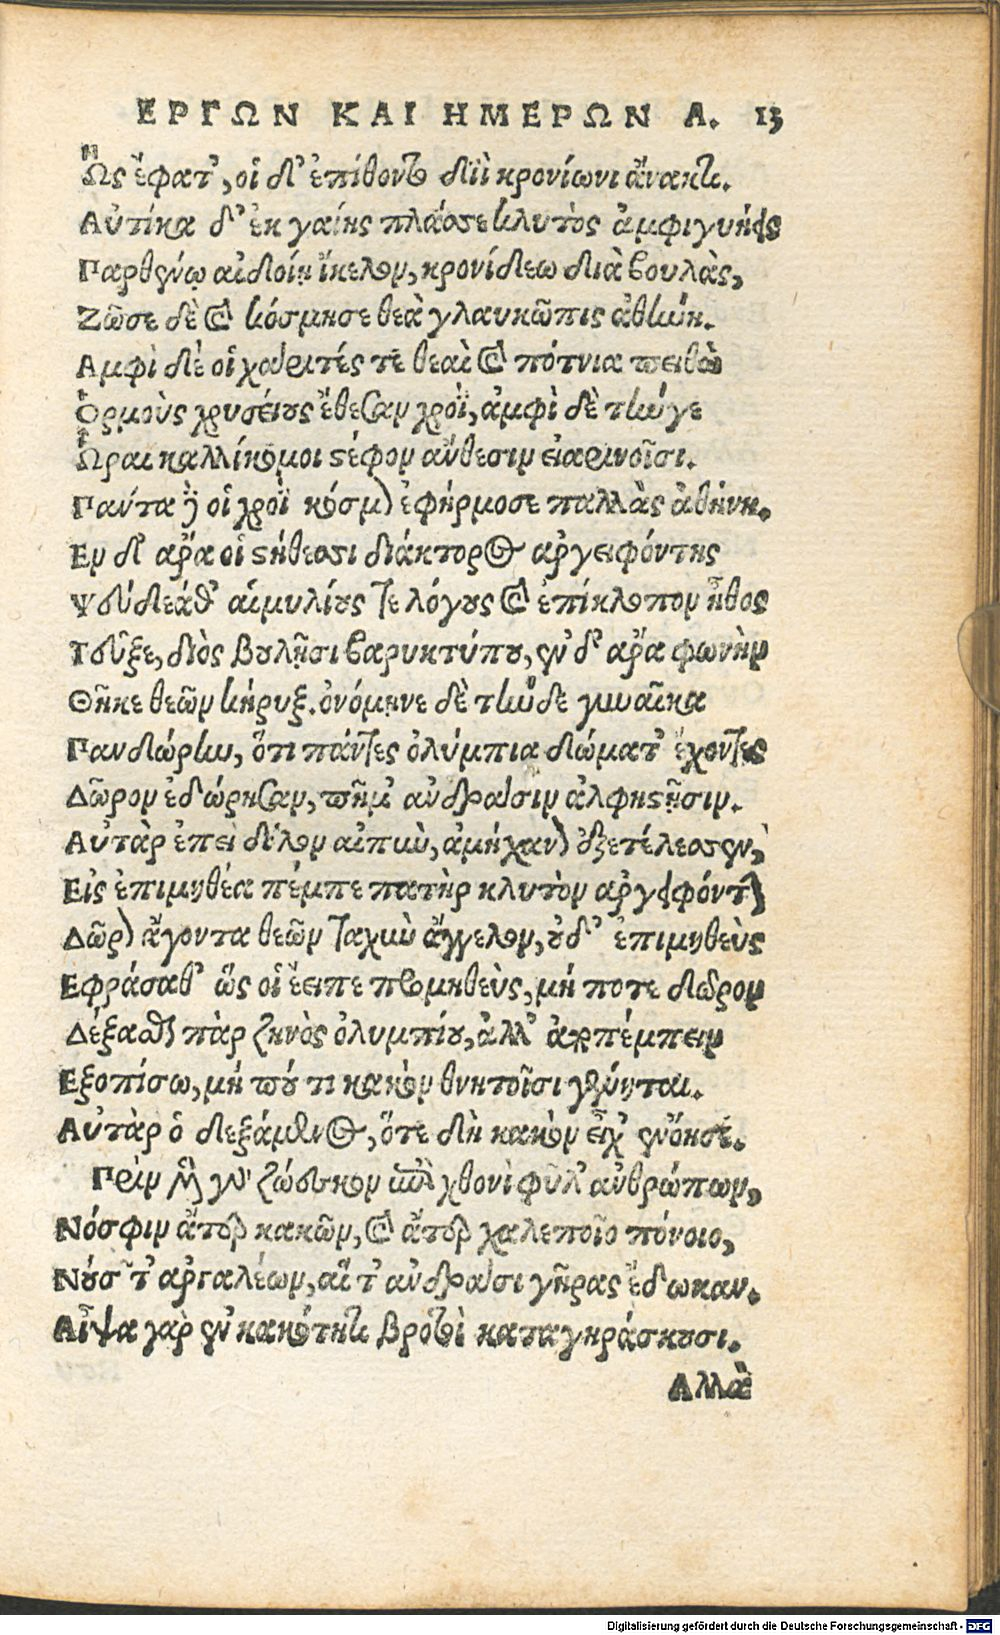 ΕΡΓΩΝ ΚΑΙ ΗΜΕΡΩΝ Α. 13
Ὣς ἔφατ', οἱ δ' ἐπίθοντο διῒ κρονίωνι ἄνακτι.
Αὐτίκα δ' ἐκ γαίης πλάσσε κλυτὸς ἀμφιγυήεις
Παρθένῳ αἰδοίῃ ἴκελον, κρονίδεω διὰ βουλὰς,
Ζῶσε δὲ καὶ κόσμησε θεὰ γλαυκῶπις ἀθήνη.
Αμφὶ δὲ οἱ χάριτές τε θεαὶ καὶ πότνια πειθὼ
Ὁρμοὺς χρυσείους ἔθεσαν χροῒ, ἀμφὶ δὲ τήνγε
Ὧραι καλλίκομοι στέφον ἄνθεσιν εἰαρινοῖσι.
Πάντα δέ οἱ χροῒ κόσμον ἐφήρμοσε παλλὰς ἀθήνη.
Εν δ' ἄρα οἱ στήθεσσι διάκτορος ἀργειφόντης
Ψεύδεάθ' αἱμυλίους τε λόγους καὶ ἐπίκλοπον ἦθος
Τεῦξε, διὸς βουλῇσι βαρυκτύπου, ἐν δ' ἄρα φωνὴν
Θῆκε θεῶν κήρυξ. ὀνόμηνε δὲ τήνδε γυναῖκα
Πανδώρην, ὅτι πάντες ὀλύμπια δώματ' ἔχοντες
Δῶρον ἐδώρησαν, πῆμ' ἀνδράσιν ἀλφηστῇσιν.
Αὐτὰρ ἐπεὶ δόλον αἰπὺν, ἀμήχανον ἐξετέλεσσεν,
Εἰς ἐπιμηθέα πέμπε πατὴρ κλυτὸν ἀργειφόντην
Δῶρον ἄγοντα θεῶν ταχὺν ἄγγελον, οὐδ' ἐπιμηθεὺς
Εφράσαθ' ὥς οἱ ἔειπε προμηθεὺς, μή ποτε δῶρον
Δέξασθαι πὰρ ζηνὸς ὀλυμπίου, ἀλλ' ἀποπέμπειν
Εξοπίσω, μή πού τι κακὸν θνητοῖσι γένηται.
Αὐτὰρ ὁ δεξάμενος, ὅτε δὴ κακὸν εἶχ' ἐνόησε.
Πρὶν μὲν γὰρ ζώεσκον ἐπὶ χθονὶ φῦλ' ἀνθρώπων,
Νόσφιν ἄτερ κακῶν, καὶ ἄτερ χαλεποῖο πόνοιο,
Νούσων τ' ἀργαλέων, αἵ τ' ἀνδράσι γῆρας ἔδωκαν.
Αἶψα γὰρ ἐν κακότητι βροτοὶ καταγηράσκουσι.
Αλλὰ
Digitalisierung gefördert durch die Deutsche Forschungsgemeinschaft - DFG